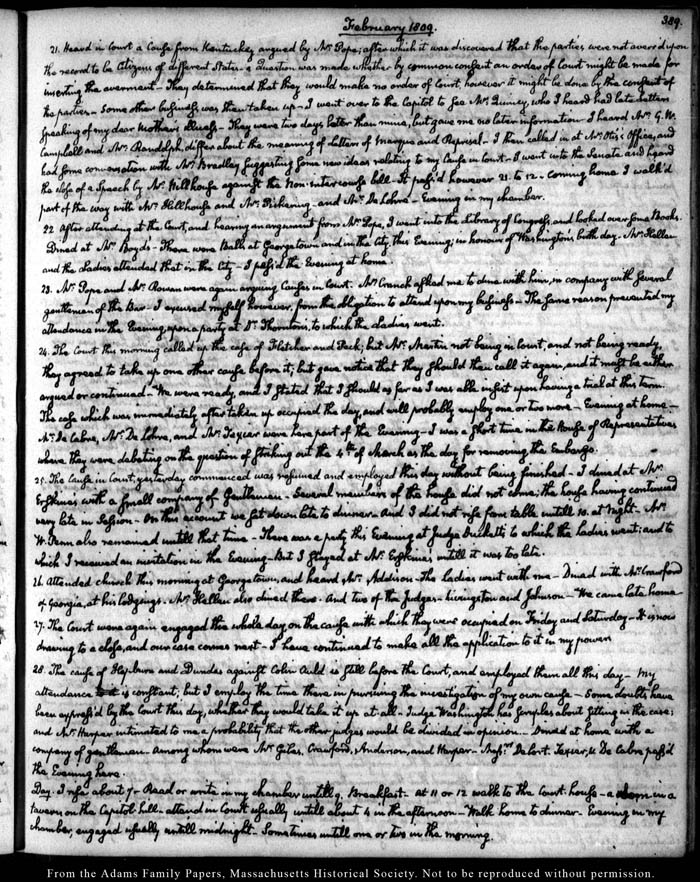 February 1809.
389.
21. Heard in Court a Cause from Kentuckey argued by Mr. Pope; after which it was discovered that the parties were not averr'd upon
the record to be Citizens of different States. a question was made whether by common consent an order of Court might be made for
inserting the averment— They determined that they would make no order of Court, however it might be done by the consent of
the parties— Some other business was then taken up— I went over to the Capitol to see Mr. Quincy, who I heard had late letters
speaking of my dear Mother's illness— They were two days later than mine, but gave me no later information— I heard Mr. G. W.
Campbell and Mr. Randolph differ about the meaning of Letters of Marque and Reprisal— I then called in at Mr. Otis's Office, and
had some conversation with Mr. Bradley suggesting some new ideas relating to my Cause in Court— I went into the Senate and heard
the close of a Speech by Mr. Hillhouse against the Non-intercourse bill— It pass'd however 21. to 12— Coming home I walk'd
part of the way with Mr. Hillhouse and Mr. Pickering— and Mr. De Cabre— Evening in my chamber.
22. After attending at the Court, and hearing an argument from Mr. Pope, I went into the Library of Congress, and looked over some Books.
Dined at Mr. Boyd's— There were Balls at Georgetown and in the City, this Evening; in honour of Washington's birth day. Mr. Hellen
and the Ladies attended that in the City— I pass'd the Evening at home.
23. Mr. Pope and Mr. Rowan were again arguing Causes in Court. Mr. Cranch asked me to dine with him, in company with several
gentlemen of the Bar— I excused myself however, from the obligation to attend upon my business— The same reason prevented my
attendance in the Evening, upon a party at Dr. Thornton's, to which the Ladies went.
24. The Court this morning called up the case of Fletcher and Peck; but Mr. Martin not being in Court, and not being ready,
they agreed to take up one other cause before it; but gave notice that they should then call it again, and it must be either
argued or continued— We were ready, and I stated that I should as far as I was able insist upon having a trial at this term.
The case which was immediately after taken up occupied the day, and will probably employ one or two more— Evening at home—
Mr. De Cabre, Mr. De Lohra, and Mr. Texier were here part of the Evening— I was a short time in the House of Representatives
where they were debating on the question of striking out the 4th of March as the day for removing the Embargo.
25. The Cause in Court, yesterday commenced was resumed and employed this day without being finished— I dined at Mr.
Erskine's with a small company of Gentlemen— Several members of the house did not come; the house having continued
very late in Session— On this account we sat down late to dinner— And I did not rise from table untill 10. at Night— Mr.
W. Penn also remained untill that time— There was a party this Evening at Judge Duckett's to which the Ladies went; and to
which I received an invitation in the Evening— But I stayed at Mr. Erskine's untill it was too late.
26. Attended church this morning at Georgetown, and heard Mr. Addison— The Ladies went with me— Dined with Mr. Crawford
of Georgia, at his lodgings. Mr. Hellen also dined there— And two of the Judges— Livingston and Johnson— We came late home.
27. The Court were again engaged this whole day on the cause with which they were occupied on Friday and Saturday— It is now
drawing to a close, and our case comes next— I have continued to make all the application to it in my power.
28. The cause of Hepburn and Dundas against Colin Auld is still before the Court, and employed them all this day— My
attendance is constant; but I employ the time there in pursuing the investigation of my own cause— Some doubts have
been express'd by the Court this day, whether they would take it up at all— Judge Washington has scruples about sitting in the case;
and Mr. Harper intimated to me a probability that the other judges would be divided in opinion— Dined at home with a
company of gentlemen. Among whom were Mr. Giles, Crawford, Anderson, and Harper— Texier, & De Cabre pass'd
the Evening here.
Day. I rise about 7— Read or write in my chamber untill 9. Breakfast— at 11 or 12 walk to the Court-house— a room in a
tavern on the Capitol hill— attend in Court usually untill about 4 in the afternoon— Walk home to dinner— Evening in my
chamber, engaged usually untill midnight— Sometimes untill one or two in the morning.
From the Adams Family Papers, Massachusetts Historical Society. Not to be reproduced without permission.